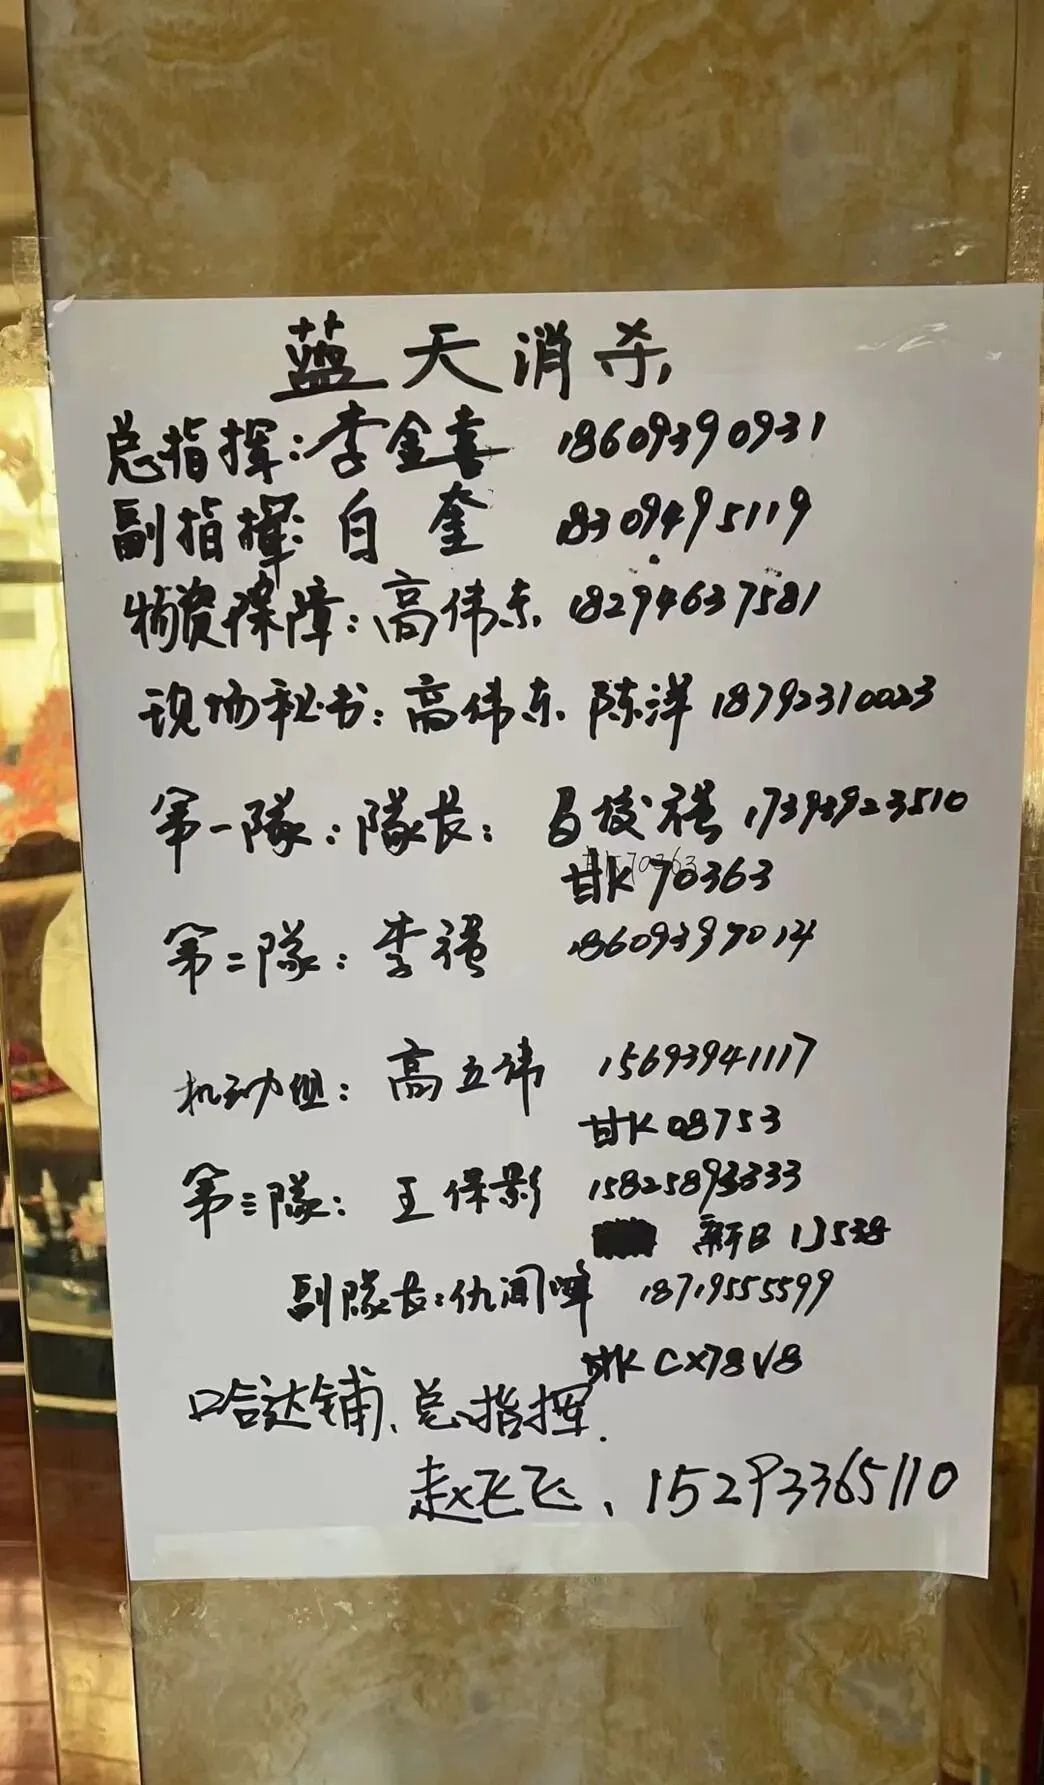 蓝天消杀
总指挥：李金喜 18609390931
副指挥：白 奎 18309495119
物资保障：高伟东 18294637581
现场秘书：高伟东 陈洋 18792310023
第一隊：隊长： 俊禎 17393923510
甘K 70363
第二隊：李强 18609397014
机动组：高五 15693941117
甘K 08753
第三隊：王保影 15825893333
新B 1J538
副隊长：仇闻 18719555599
甘K CX78V8
哈达铺、总指挥.
赵飞飞、15293365110